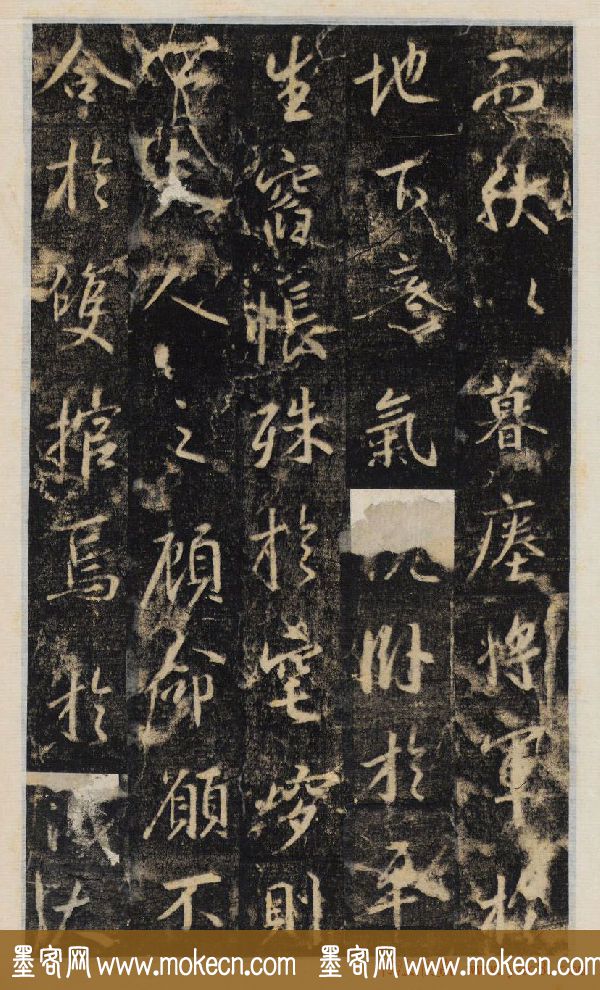 而秋以暮瘞將軍於
地下意氣沉卧於平
生窅帳殊於則
夫人之顧命願不
合於雙棺焉於
墨客网 www.mokecn.com 墨客网 www.mokecn.com